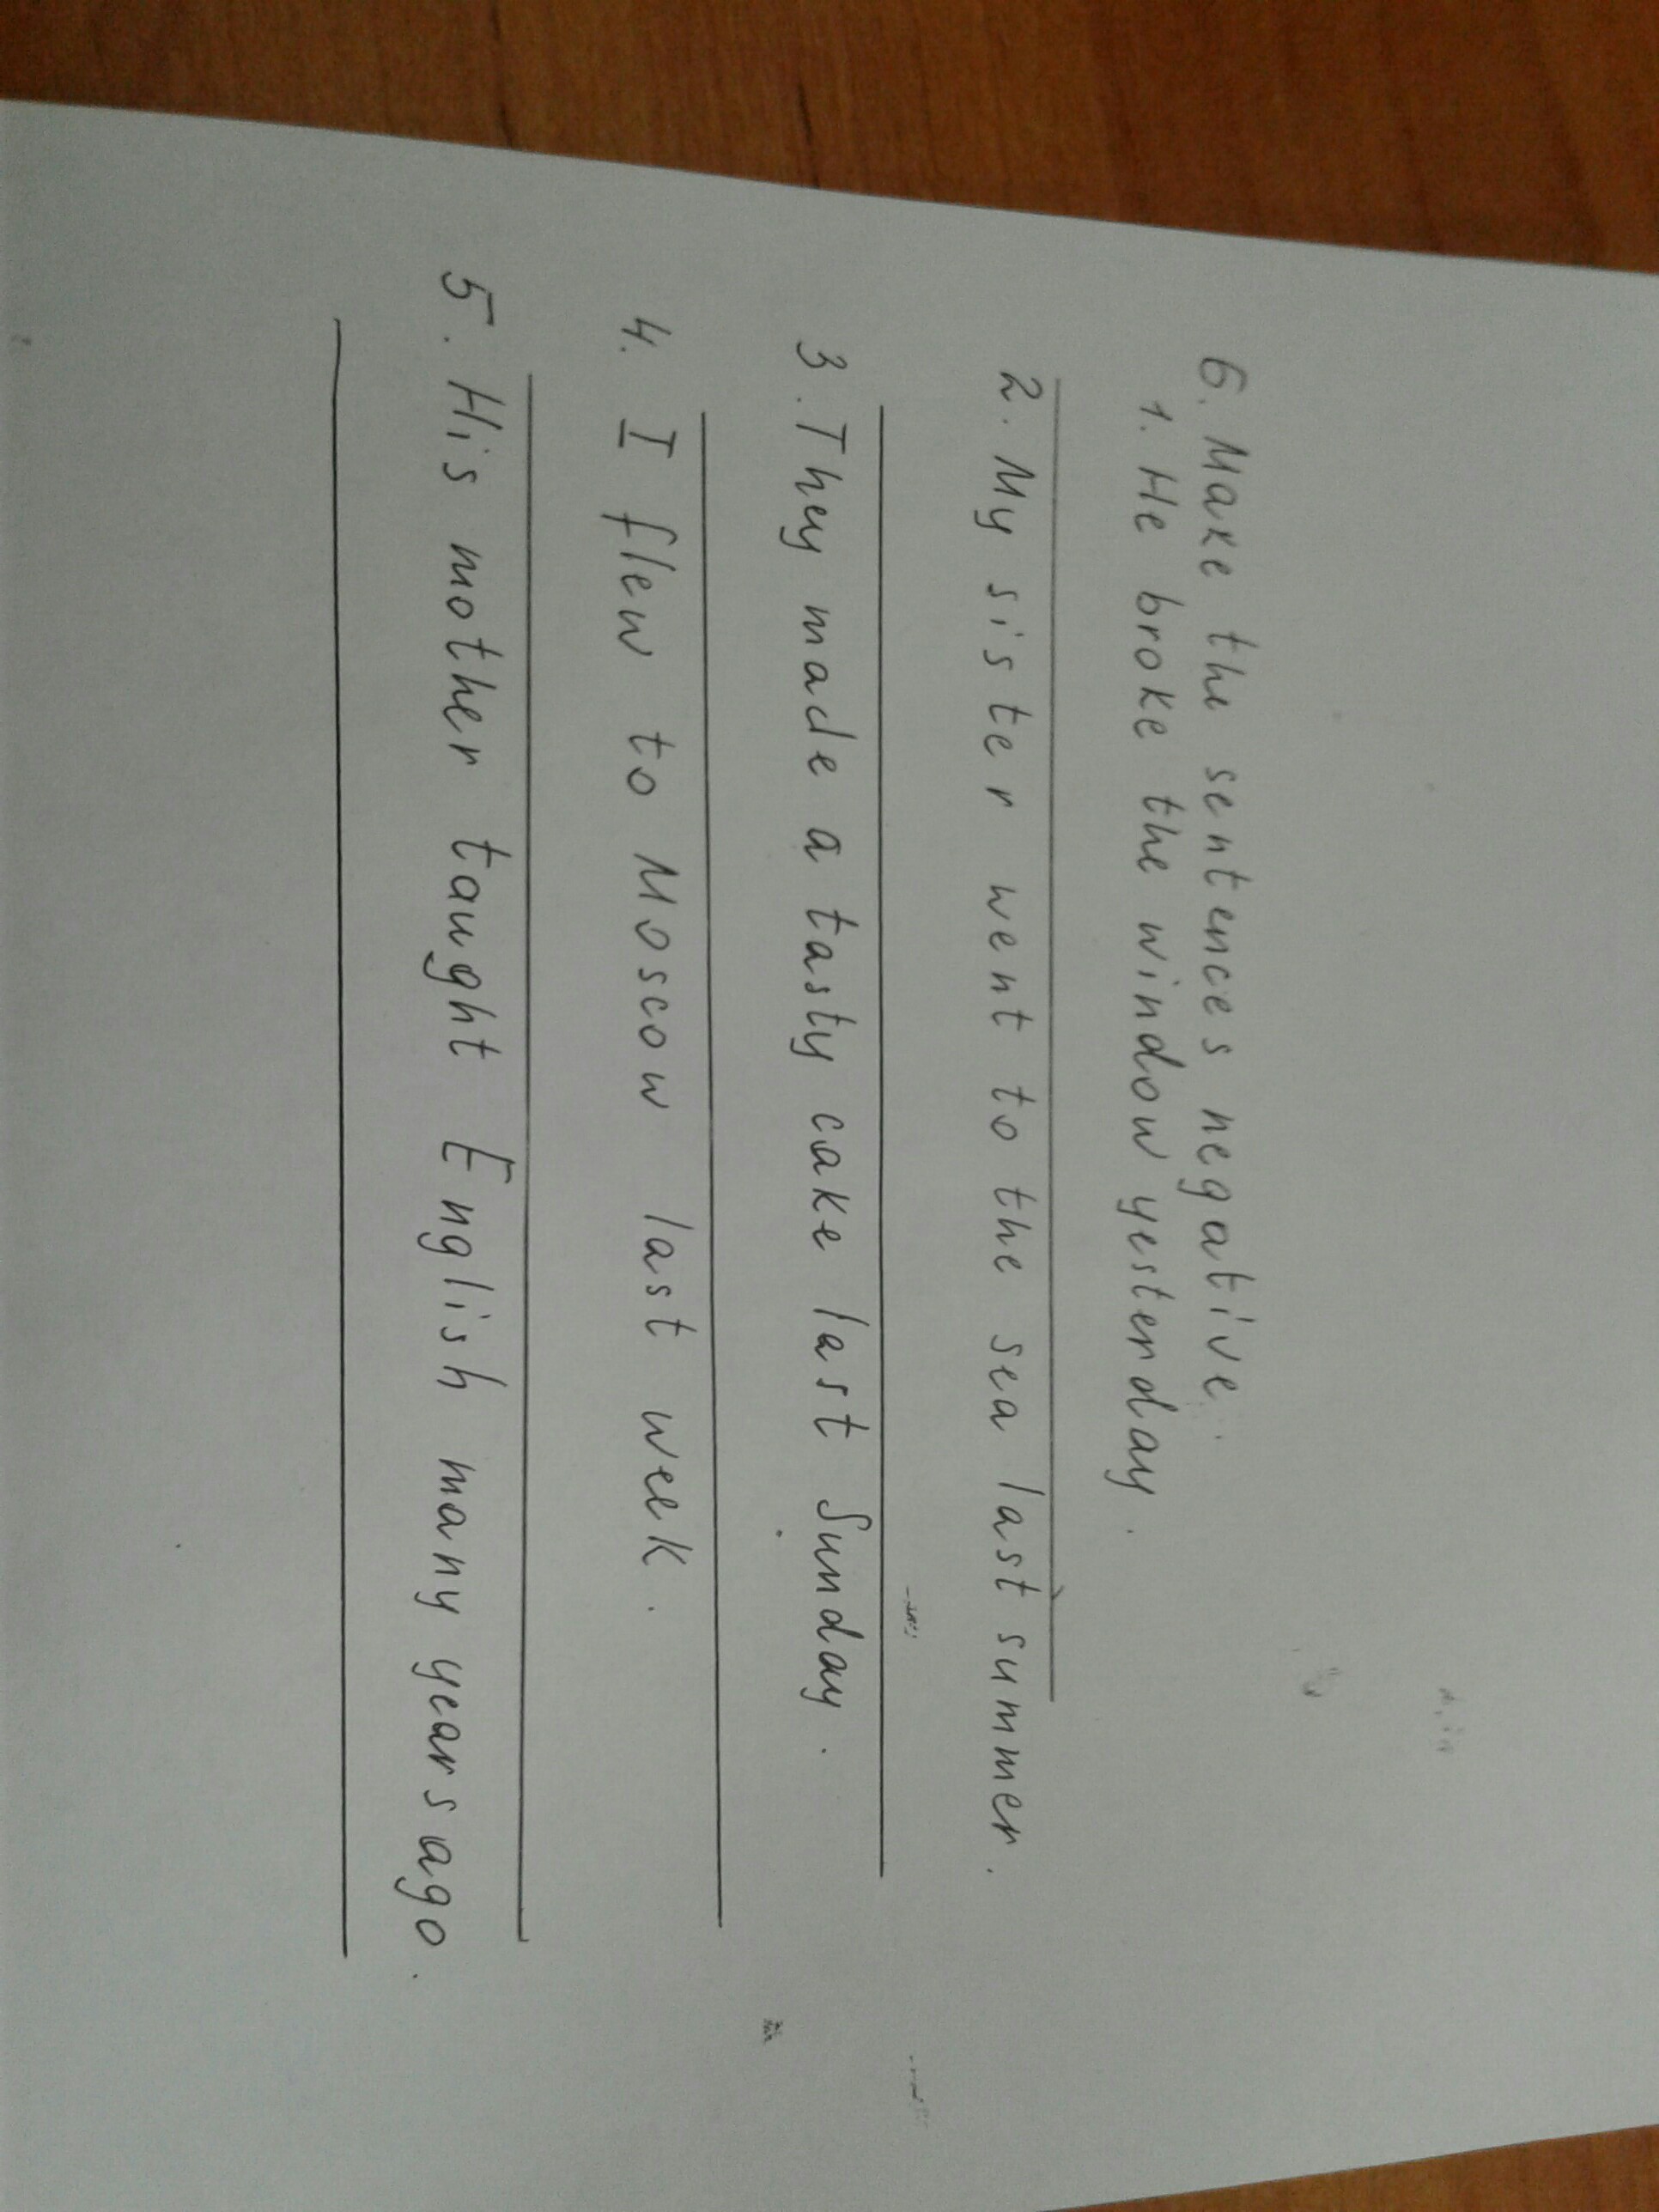 6. Make the sentences negative.
1. He broke the window yesterday.
2. My sister went to the sea last summer.
3. They made a tasty cake last Sunday.
4. I flew to Moscow last week.
5. His mother taught English many years ago.